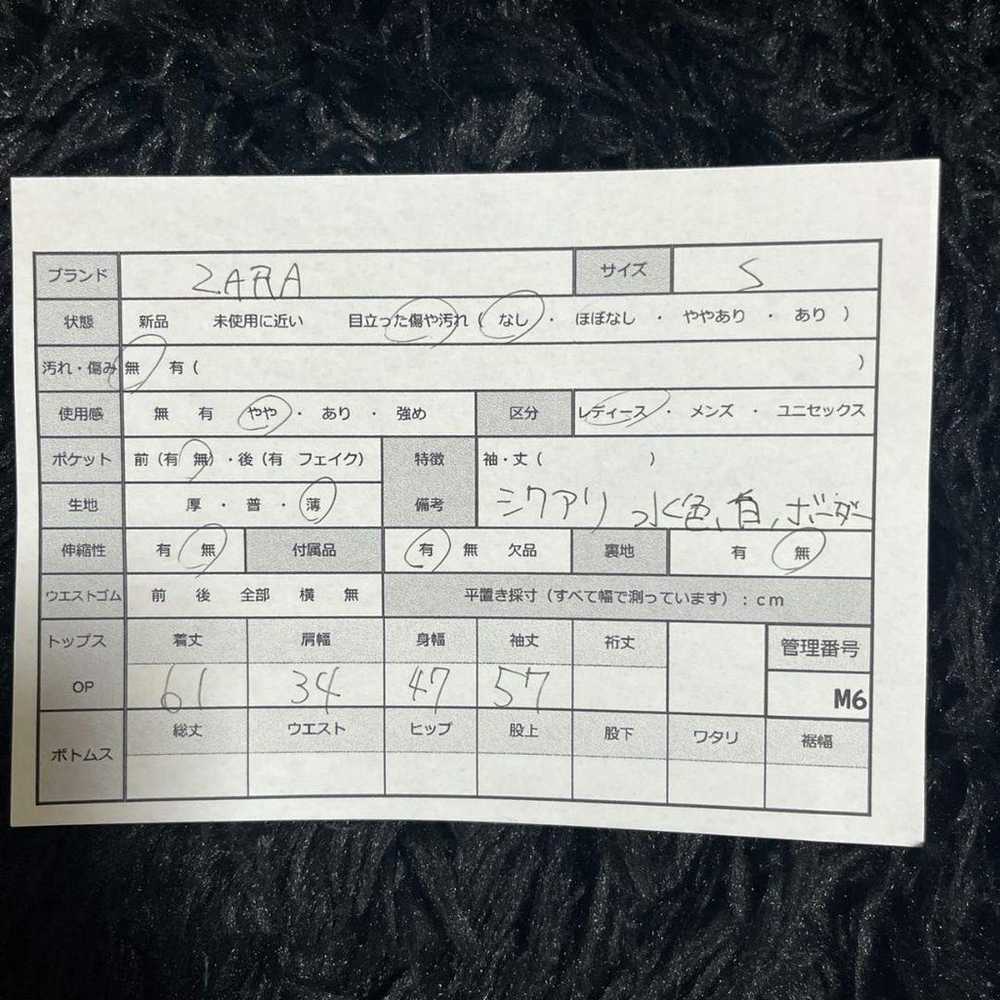 ブランド ZARA サイズ S
状態 新品 未使用に近い 目立った傷や汚れ ( なし ・ ほぼなし ・ ややあり ・ あり )
汚れ・傷み 無 有 ( )
使用感 無 有 やや ・ あり ・ 強め 区分 レディース ・ メンズ ・ ユニセックス
ポケット 前(有 無)・後(有 フェイク) 特徴 袖・丈 ( )
生地 厚 ・ 普 ・ 薄 備考 シワアリ 水色、白、ボーダー
伸縮性 有 無 付属品 有 無 欠品 裏地 有 無
ウエストゴム 前 後 全部 横 無 平置き採寸(すべて幅で測っています):cm
トップス 着丈 肩幅 身幅 袖丈 裄丈 管理番号
OP 61 34 47 57 M6
ボトムス 総丈 ウエスト ヒップ 股上 股下 ワタリ 裾幅